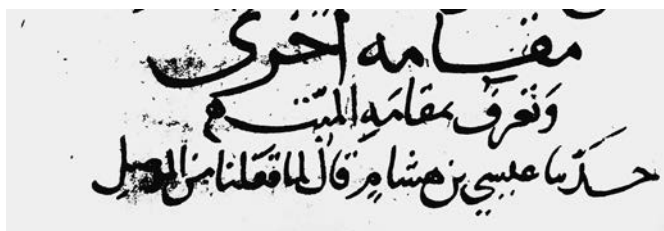 مقامه اخرى
وتعرف بمقامة
حدثنا عيسي بن هشام قال لما قفلنا من الموصل